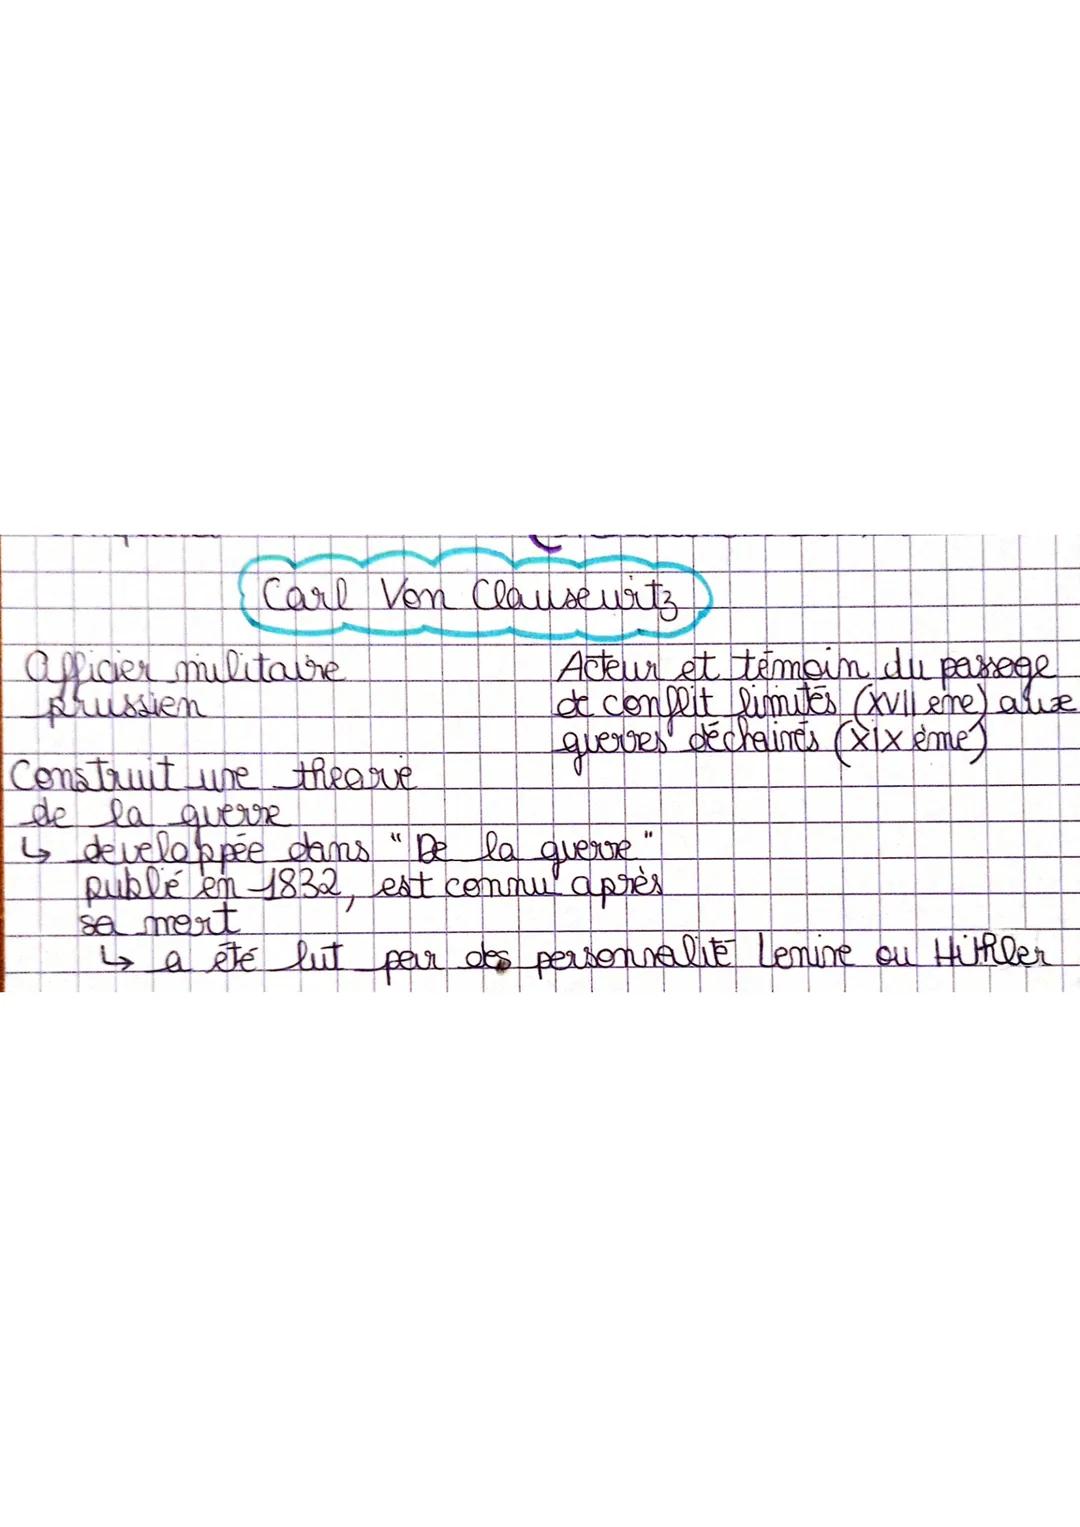 Carl Von Clausewitz
Officier militaire
prussien
Acteur et témoin du passage
de conflit limités (XVII eme) aux
guerres déchainés (XIX ème)
Construit une theorie
de la guerre
↳ developpée dans "De la guerre"
publié en 1832, est connu après
sa mort
↳ a été lut par des personnalité Lenine ou Hithler